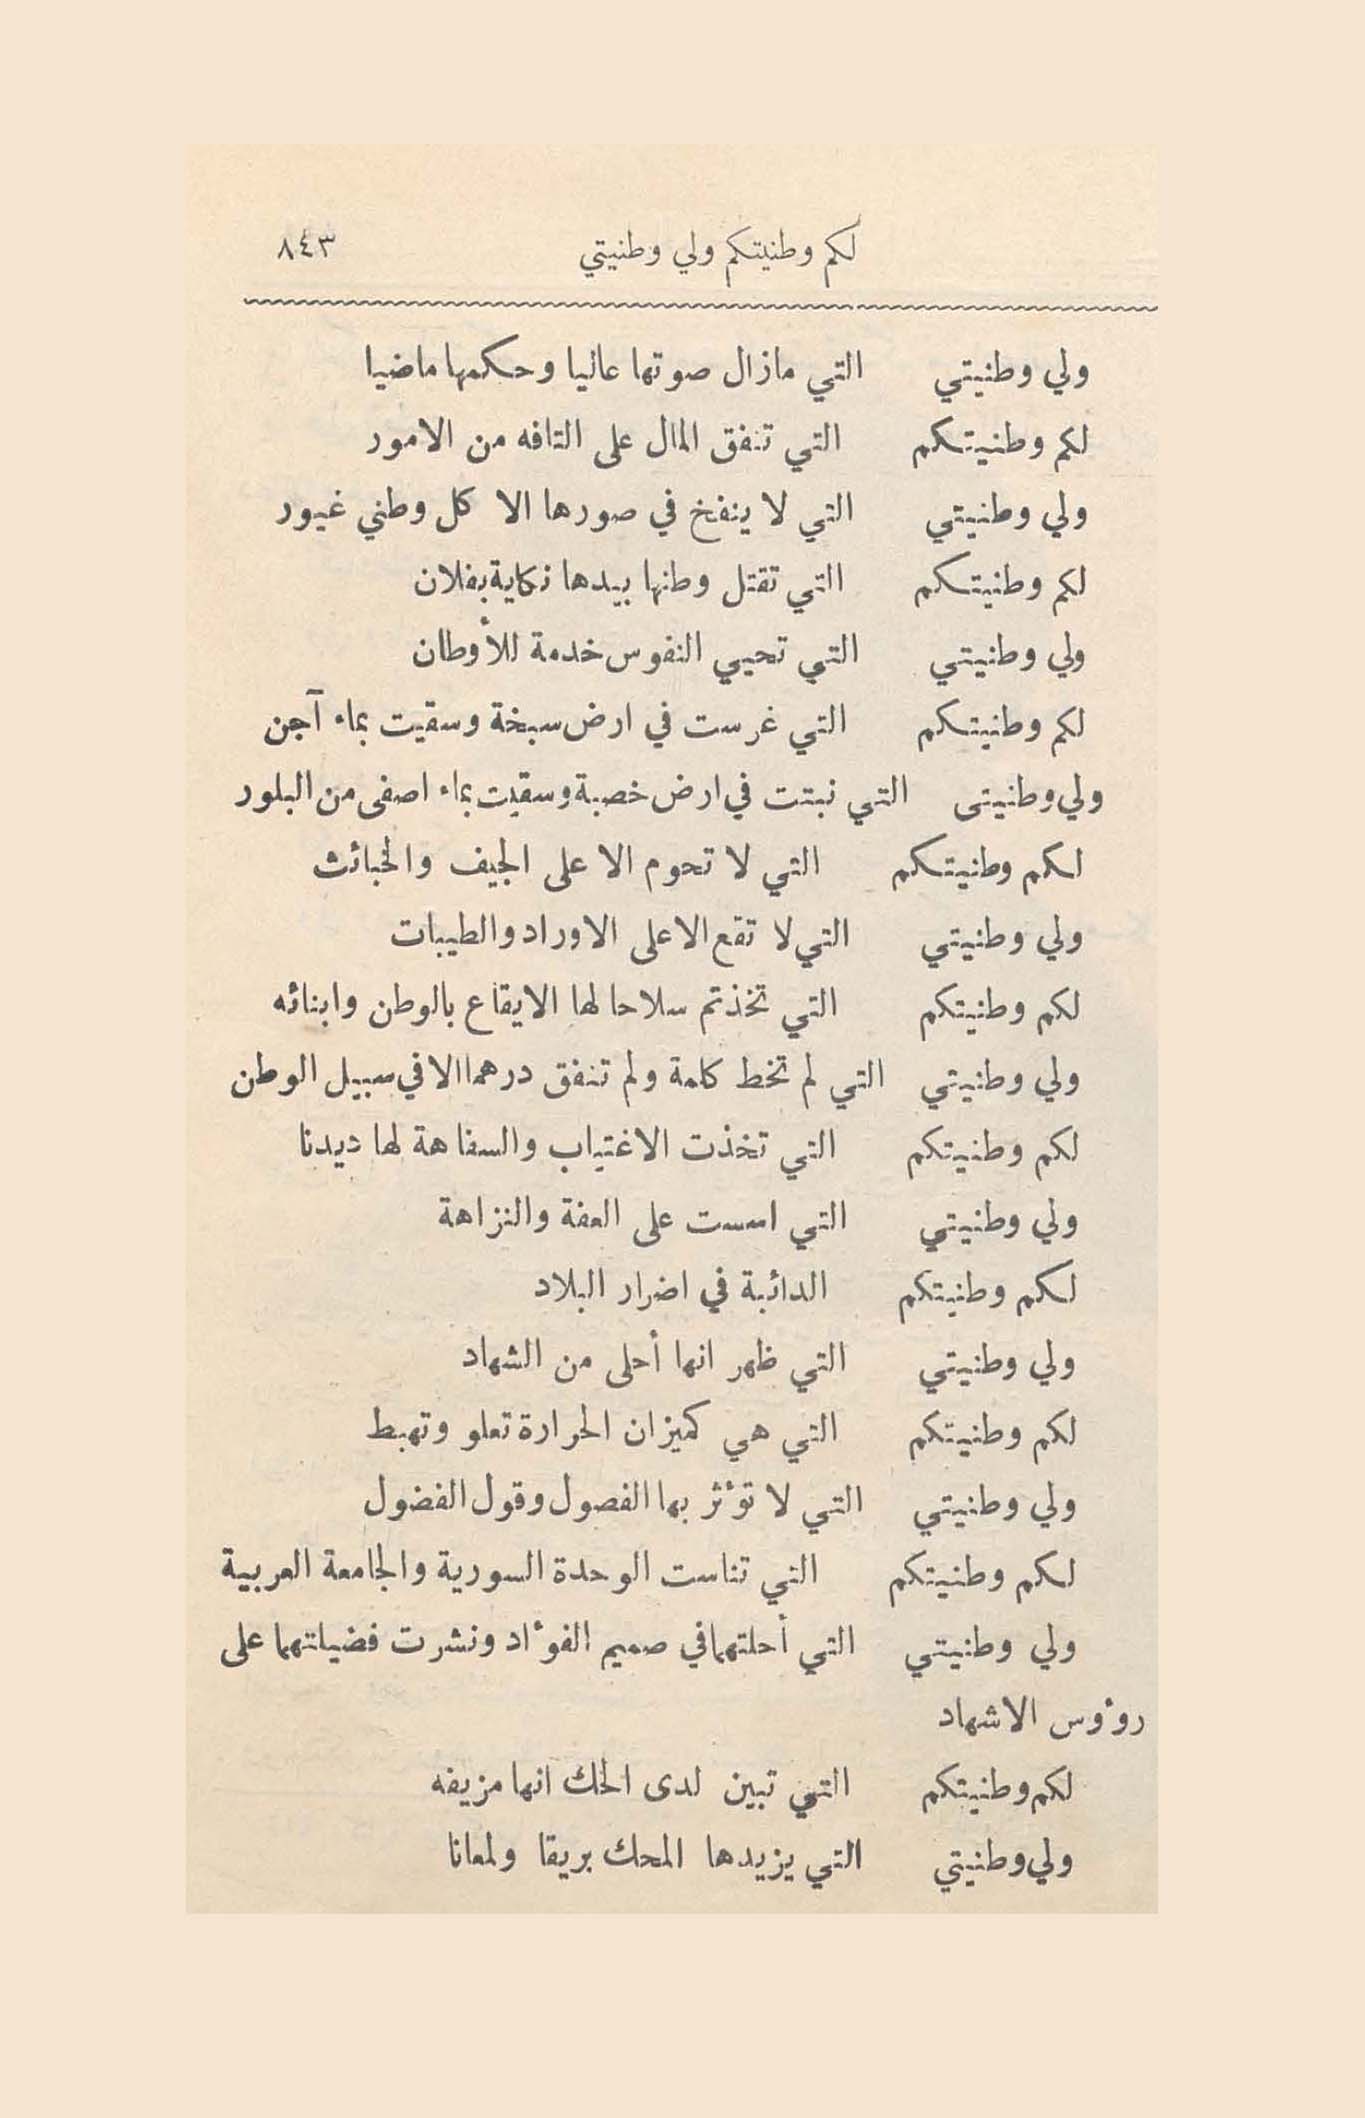 لكم وطنيتكم ولي وطنيتي ٨٤٣
ولي وطنيتي التي مازال صوتها عاليا وحكمها ماضيا
لكم وطنيتكم التي تنفق المال على التافه من الامور
ولي وطنيتي التي لا ينفخ في صورها الا كل وطني غيور
لكم وطنيتكم التي تقتل وطنها بيدها نكاية بفلان
ولي وطنيتي التي تحيي النفوس خدمة للأوطان
لكم وطنيتكم التي غرست في ارض سبخة وسقيت بماء آجن
ولي وطنيتى التي نبتت في ارض خصبة وسقيت بماء اصفى من البلور
لكم وطنيتكم التي لا تحوم الا على الجيف والخبائث
ولي وطنيتي التي لا تقع الا على الاوراد والطيبات
لكم وطنيتكم التي تخذتم سلاحا لها الايقاع بالوطن وابنائه
ولي وطنيتي التي لم تخط كلمة ولم تنفق درهما الا في سبيل الوطن
لكم وطنيتكم التي تخذت الاغتياب والسفاهة لها ديدنا
ولي وطنيتي التي اسست على العفة والنزاهة
لكم وطنيتكم الدائبة في اضرار البلاد
ولي وطنيتي التي ظهر انها أحلى من الشهاد
لكم وطنيتكم التي هي كميزان الحرارة تعلو وتهبط
ولي وطنيتي التي لا تؤثر بها الفصول وقول الفضول
لكم وطنيتكم التي تناست الوحدة السورية والجامعة العربية
ولي وطنيتي التي أحلتهما في صميم الفؤاد ونشرت فضيلتهما على
رؤوس الاشهاد
لكم وطنيتكم التي تبين لدى الحك انها مزيفه
ولي وطنيتي التي يزيدها المحك بريقا ولمعانا